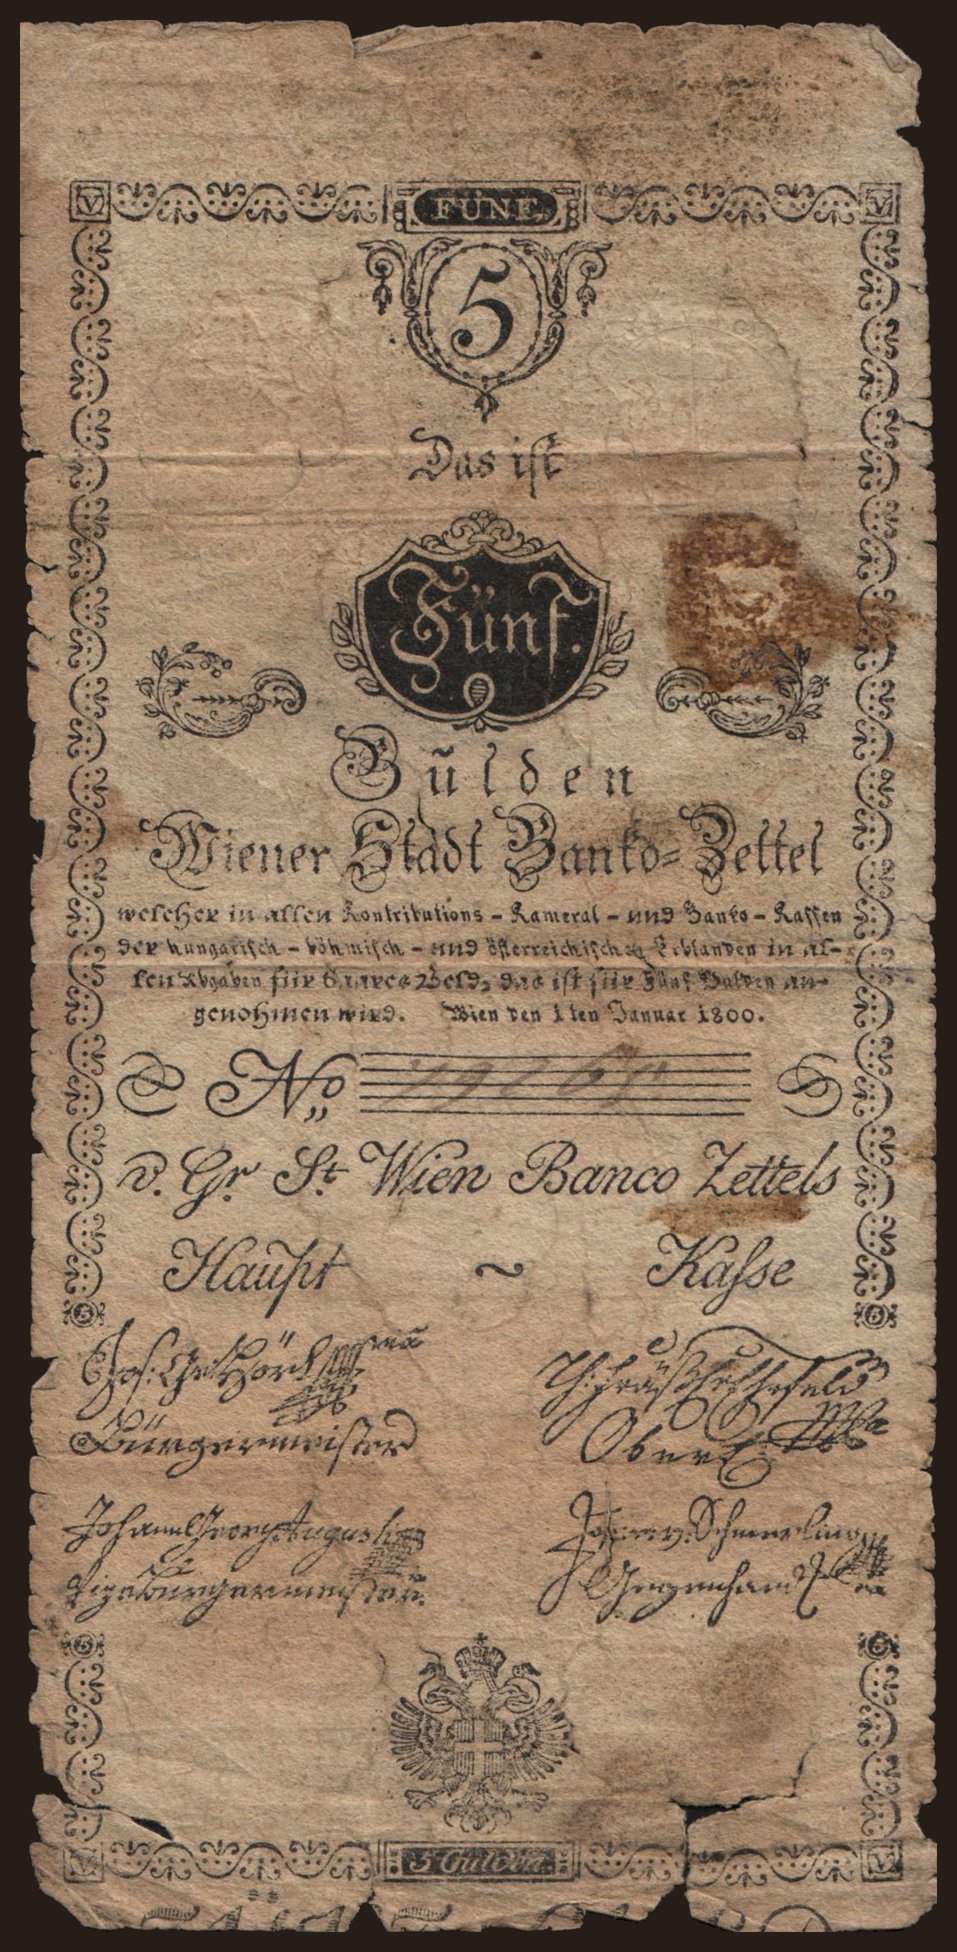 V FÜNF. V
5
Das ist
Fünf.
Gulden
Wiener Stadt Banko-Zettel
welcher in allen Kontributions - Kameral - und Banko - Kassen
der hungarisch - böhmisch - und österreichischen Erblanden in al-
len Abgaben für Baares Geld, das ist für Fünf Gulden an-
genohmen wird. Wien den 1ten Januar 1800.
No
v. Gr. St. Wien Banco Zettels
Haupt ~ Kasse
5 5
Jos. Geo. Hörl
Bürgermeister
Ober
Johann Georg Augusti
Vizebürgermeister.
Jos. v. Schmerling
Gegenhandler
5 5
V 5 Gulden. V